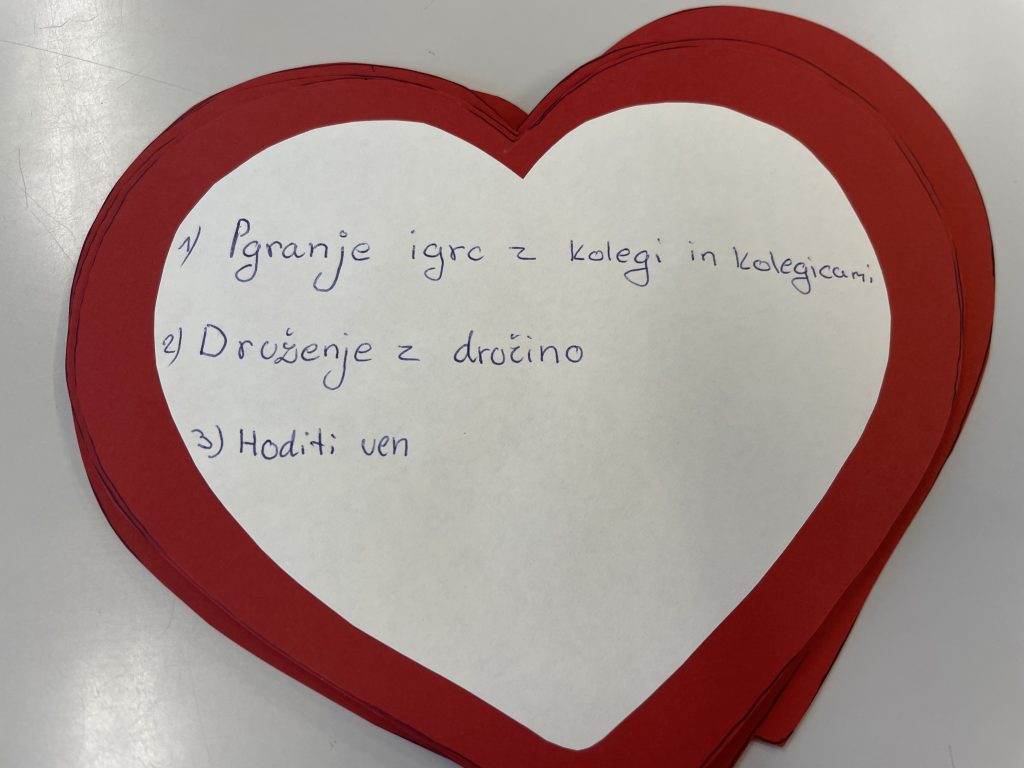 1) Pgranje igrc z kolegi in kolegicami
2) Druženje z dročino
3) Hoditi ven